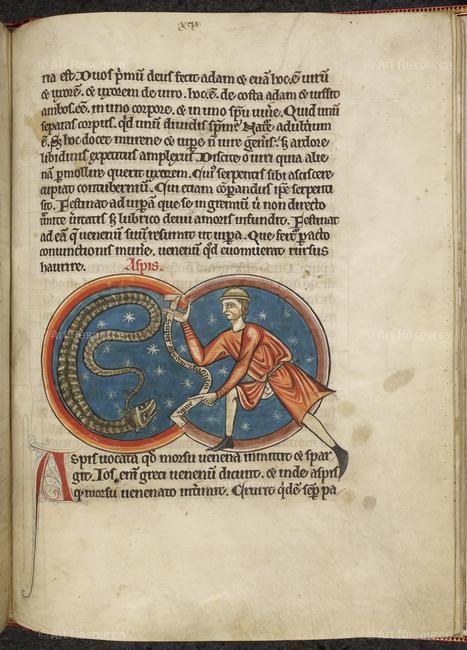 xix
ria est. Duos p̄mū deus fecit adam ⁊ euā hoc.ē. uirū
⁊ uxorē. ⁊ uxorem de uiro. hoc.ē. de costa adam ⁊ iussit
ambos.eē. in uno corpore. ⁊ in uno spū uiuē. Quid unū
separas corpus. qd̄ unū diuidis spm̄. adulterium
ē. hoc docet murene ⁊ uipe n̄ iure generis. s; ardore
libidinis expetitus amplexus. Discite o uiri quia alie
nā pmollire querit uxorem. Cuiꝰ serpentis sibi asciscere
cupiat contuberniū. Cui etiam cōparandus ipse serpenti
sit. Festinat ad uipā que se in gremiū ū non directo
ueritatis s; lubrico deuii amoris infundit. Festinat
ad eā q̄ uenenū suū resumit ut uipa. Que fertᷣ pacto
coniunctionis munē. uenenū qd̄ euomuerat rursus
haurire. Aspis.
Aspis uocata qd̄ morsu uenena inmittit ⁊ spar
git. Ios. em̄ greci uenenū dicunt. ⁊ inde aspis
q̄ morsu uenenato intimit. qdē semp pa
© Art Resource